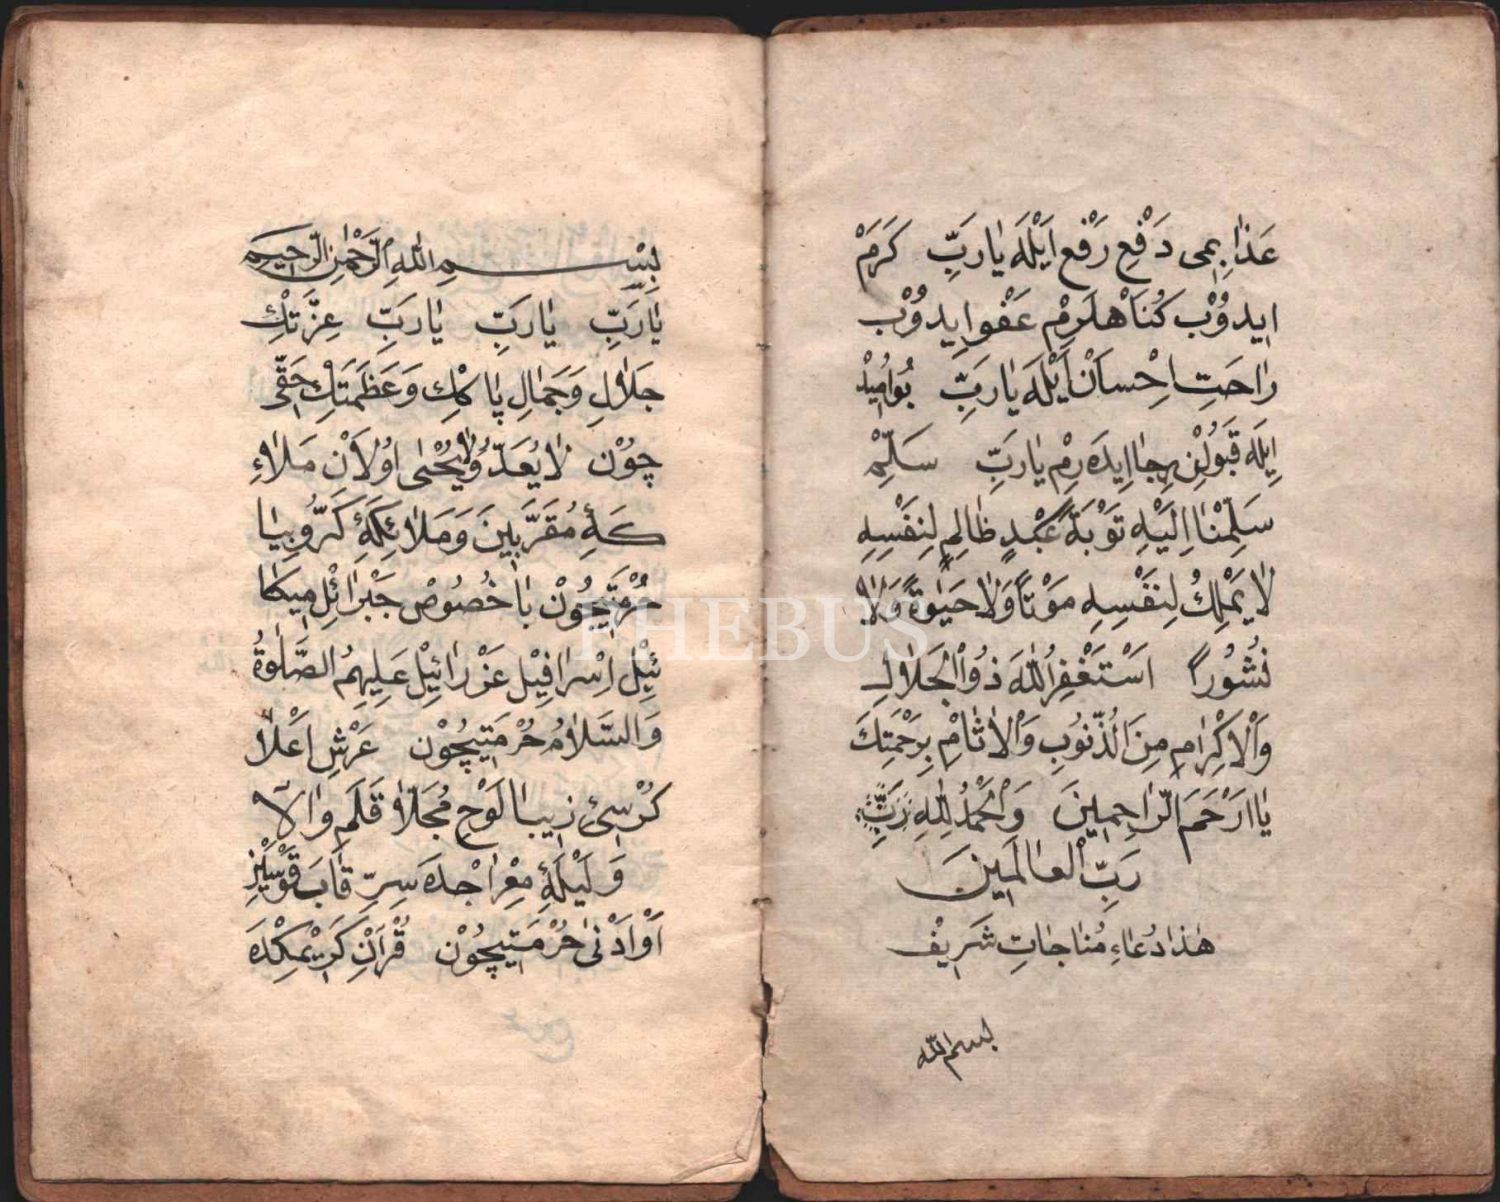 عَذٰابِمِى دَفْعِ رَفْع اَيْلَه يٰارَبِّ كَرَمْ
ايدوُبْ كُنَاهْلَرِمْ عَفْوايِدوُبْ
رٰاحَتِ اِحْسٰانْ اَيْلَه يٰارَبِّ بُواُمِيدْ
اِيلَه قَبُولِنْ رِجٰا ايِدَه رِمْ يٰارَبِّ سَلِّمْ
سَلِّمْنٰا اِلَيْهِ تَوْبَةَ عَبْدٍ ظٰالِمٍ لِنَفْسِهِ
لٰا يَمْلِكُ لِنَفْسِهِ مَوْتاً وَلٰا حَيٰوةً وَلٰا
نُشُوُراً اَسْتَغْفِرُاللّٰهَ ذوُالْجَلاٰلِ
وَالْاِكْرٰامِ مِنَ الذُّنوُبِ وَالْاٰثٰامِ بِرَحْمَتِكَ
يٰا اَرْحَمَ الرّٰاحِمِينَ وَالْحَمْدُ لِلّٰهِ رَبِّ
رَبِّ الْعٰالَمِينَ
هٰذٰا دُعٰاءِ مُنٰاجٰاتِ شَرِيفْ
بسم الله
بِسْمِ اللّٰهِ الرَّحْمٰنِ الرَّحِيمِ
يٰارَبِّ يٰارَبِّ يٰارَبِّ عِزَّتِكْ
جَلاٰلِ وَجَمٰالِ پٰاكِكْ وَعَظَمَتِكْ حَقّى
چوُنْ لٰا يُعَدُّ وَلٰا يُحْصٰى اوُلاٰنْ مَلاٰءِ
كَهِٔ مُقَرَّبِينَ وَمَلاٰئِكَهِٔ كَرُّوبِيٰا
حُرْمَتِچُوْن بٰاخُصُوصْ جَبْرٰائِلْ مِيكٰا
ئِيْل اِسْرٰافِيْل عَزْرٰائِيْل عَلِيْهِمُ الصَّلٰوةُ
وَالسَّلاٰمُ حُرْمَتِيچُوْن عَرْشِ اَعْلاٰ
كُرْسِىِٔ زيبٰا لَوْحِ مُجَلاّٰ قَلَمِ وٰالاٰ
وَ لَيْلَهِٔ مِعْرٰاجْدَه سِرِّ قٰابَ قَوْسَيْنِ
اَوْاَدْنٰى حُرْمَتِيچُوْن قُرْاٰنِ كَرِيْمِكْدَه
PHEBUS